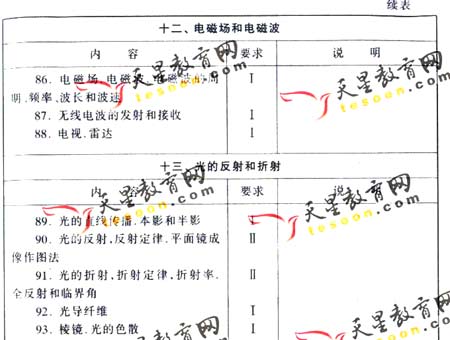 续表
十二、电磁场和电磁波
内 容 要求 说 明
86. 电磁场,电磁波,电磁波的周 Ⅰ
期、频率、波长和波速
87. 无线电波的发射和接收 Ⅰ
88. 电视.雷达 Ⅰ
十三、光的反射和折射
内 容 要求 说
89. 光的直线传播.本影和半影 Ⅰ
90. 光的反射,反射定律.平面镜成 Ⅱ
像作图法
91. 光的折射,折射定律,折射率. Ⅱ
全反射和临界角
92. 光导纤维 Ⅰ
93. 棱镜.光的色散 Ⅰ
天星教育网
tesoon.com
天星教育网
tesoon.com
天星教育网
tesoon.com
天星教育网
tesoon.com
天星教育网
天星教育网